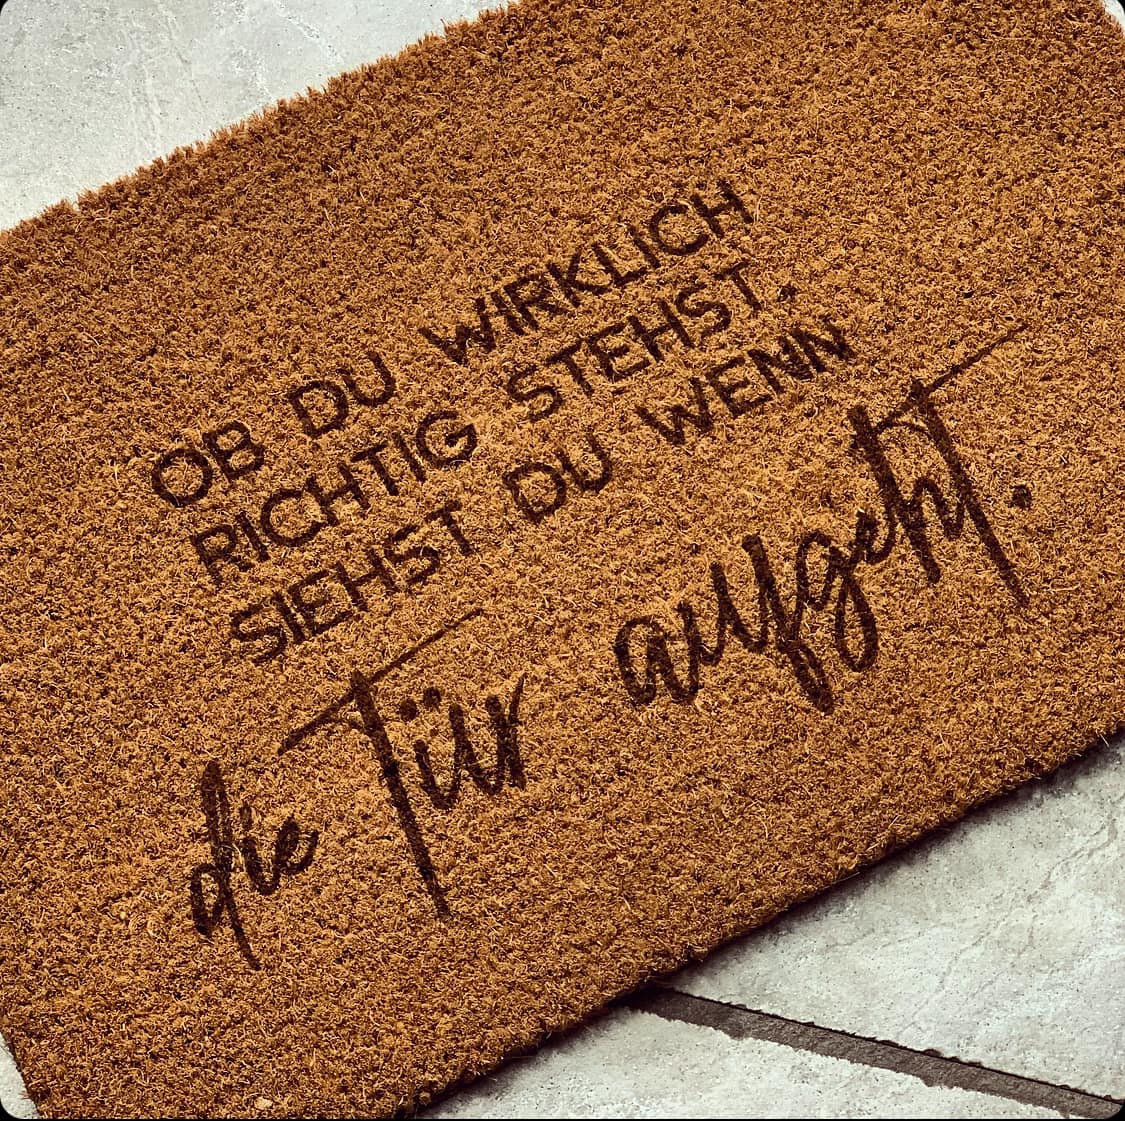 OB DU WIRKLICH
RICHTIG STEHST,
SIEHST DU WENN
die Tür aufgeht.